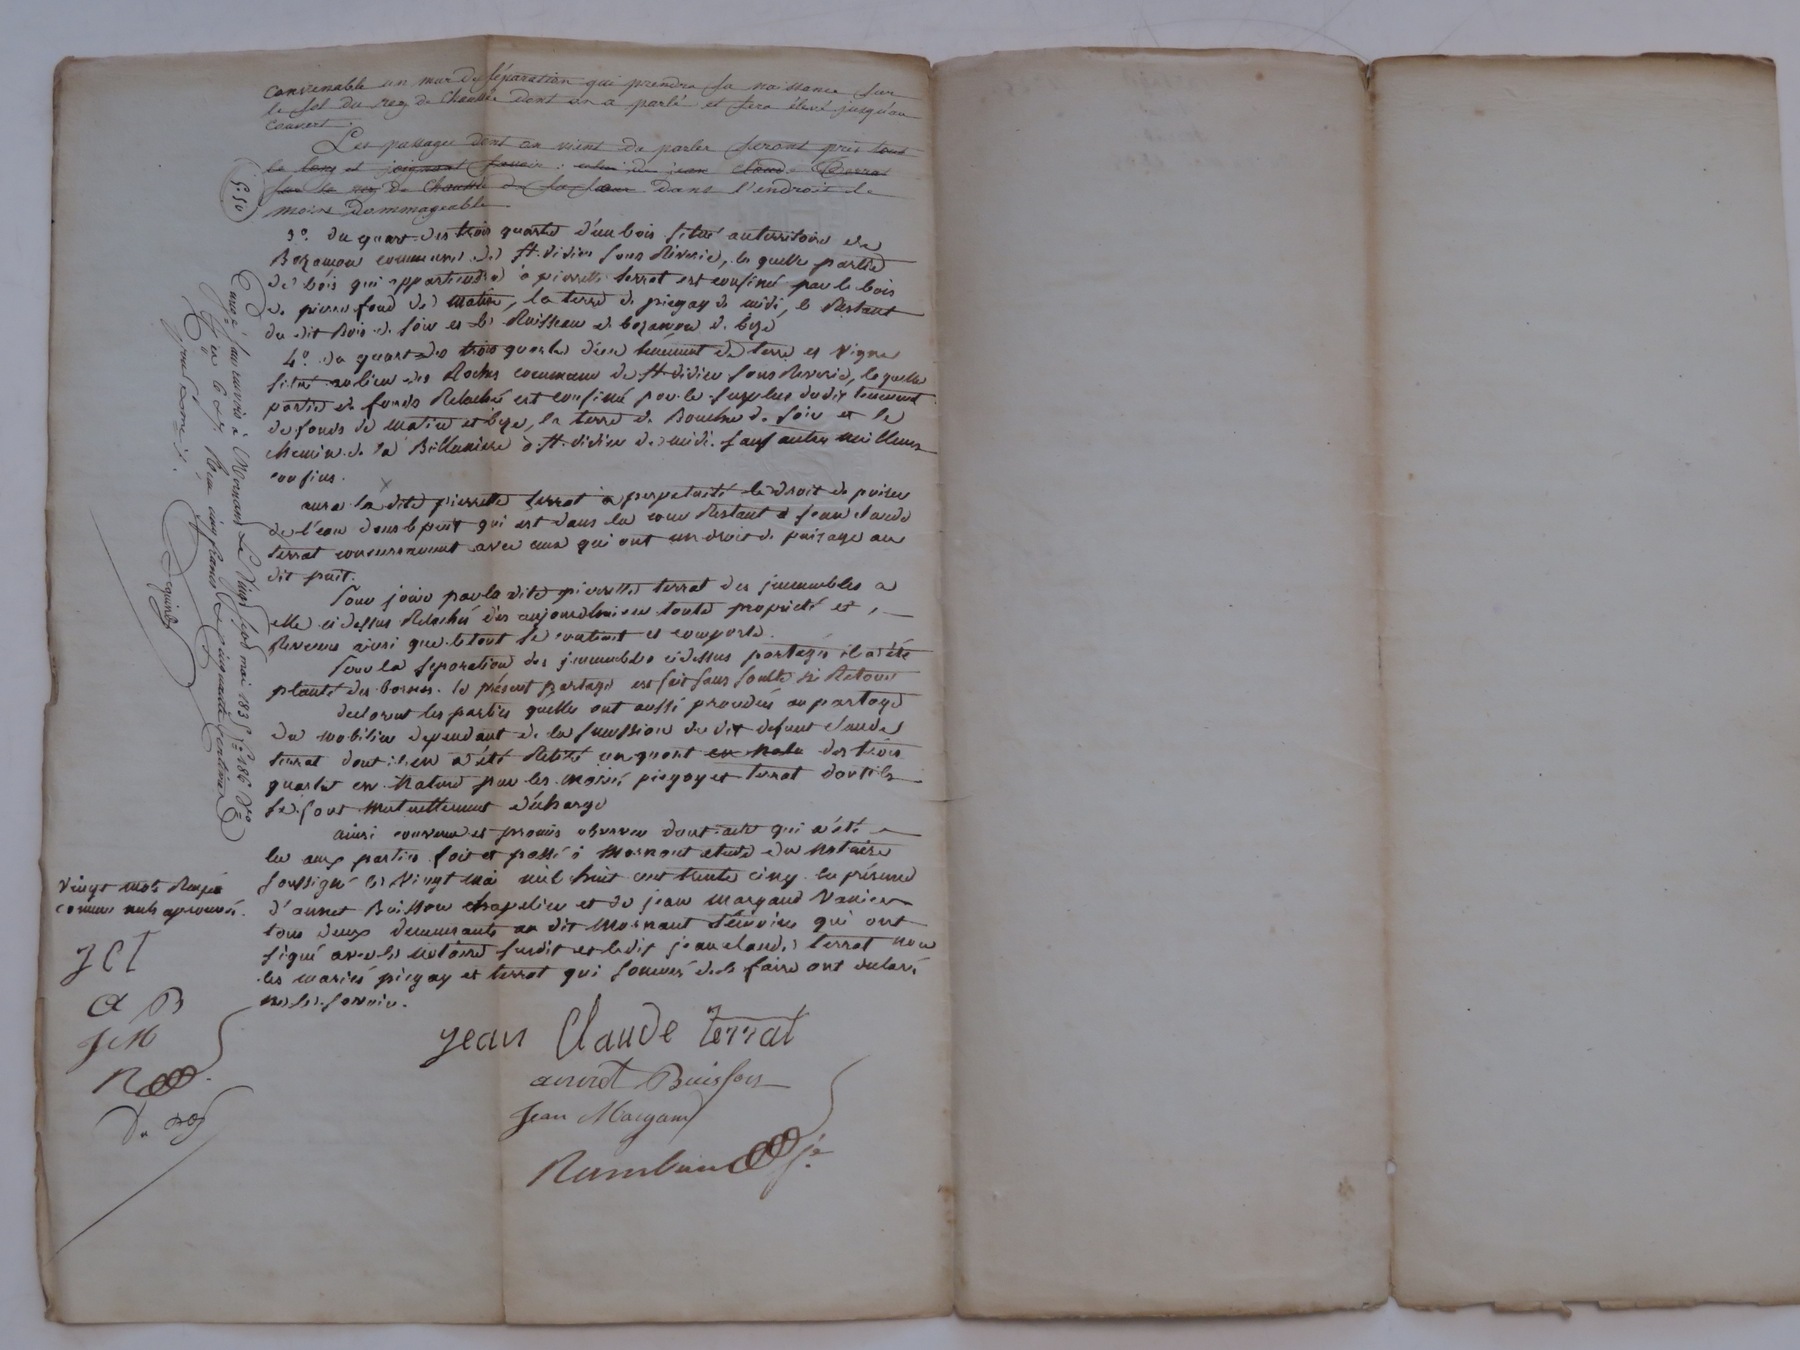 convenable un mur de séparation qui prendra sa naissance sur
le sol du rez de chaussée dont on a parlé et sera élevé jusqu'au
couvert.
Les passages dont on vient de parler seront pris tout
le long et joignant savoir : celui de jean Claude Terrat
sur le rez de chaussée de sa sœur dans l'endroit le
moins dommageable
5.50
3o. du quart des trois quarts d'un bois situé au territoire de
Bozançon commune de St. didier sous Riverie, la quelle partie
de bois qui appartiendra à pierrette terrat est confiné par le bois
de pierre fond de matin, la terre de piegay de midi, le Restant
du dit Bois de soir et le Ruisseau de bozançon de bize
4o. du quart des trois quarts d'un tenement de terre et Vigne
situé au lieu des Roches commune de St. didier sous Riverie, la quelle
partie de fonds Relaché est confiné par le surplus du dit tenement
de fonds de matin et bize, la terre de Bouchu de soir et le
chemin de la Billaniere à St. didier de midi. sauf autres meilleurs
confins.
aura la dite pierrette terrat à perpetuité le droit de puiser
de l'eau dans le puit qui est dans la cour Restant à jean claude
terrat concuremment avec ceux qui ont un droit de puisage au
dit puit.
Pour jouir par la dite pierrette terrat des immeubles a
elle cidessus Relachés dès aujourdhui en toute propriété et
Revenus ainsi que le tout se contient et comporte.
Pour la séparation des immeubles cidessus partagés il a été
planté des bornes. le présent partage est fait sans soulte ni Retour
declarent les parties quelles ont aussi procédés au partage
du mobilier dependant de la succession du dit defunt claude
terrat dont il en a été Retiré un quart en natu des trois
quarts en Nature par les mariés piegay et terrat dont ils
se font mutuellement décharge
ainsi convenu et promis observer dont acte qui a été
lu aux parties fait et passé à Mornant etude du Notaire
soussigné le Vingt mai mil huit cent trente cinq en présence
d'annet Buisson chapelier et de jean margand Vanier
tous deux demeurants au dit Mornant témoins qui ont
signé avec le notaire susdit et le dit jean claude terrat non
les mariés piegay et terrat qui sommés de le faire ont déclaré
ne le savoir.
jean Claude terrat
annet Buisson
Jean Margand
Vingt mots Rayés
comme nuls aprouvés.
J C T
A B
J M
Enregistré à Mornant le Vingt sept mai 1835 fo. 186 Vo
Reçu cinq francs cinquante centimes